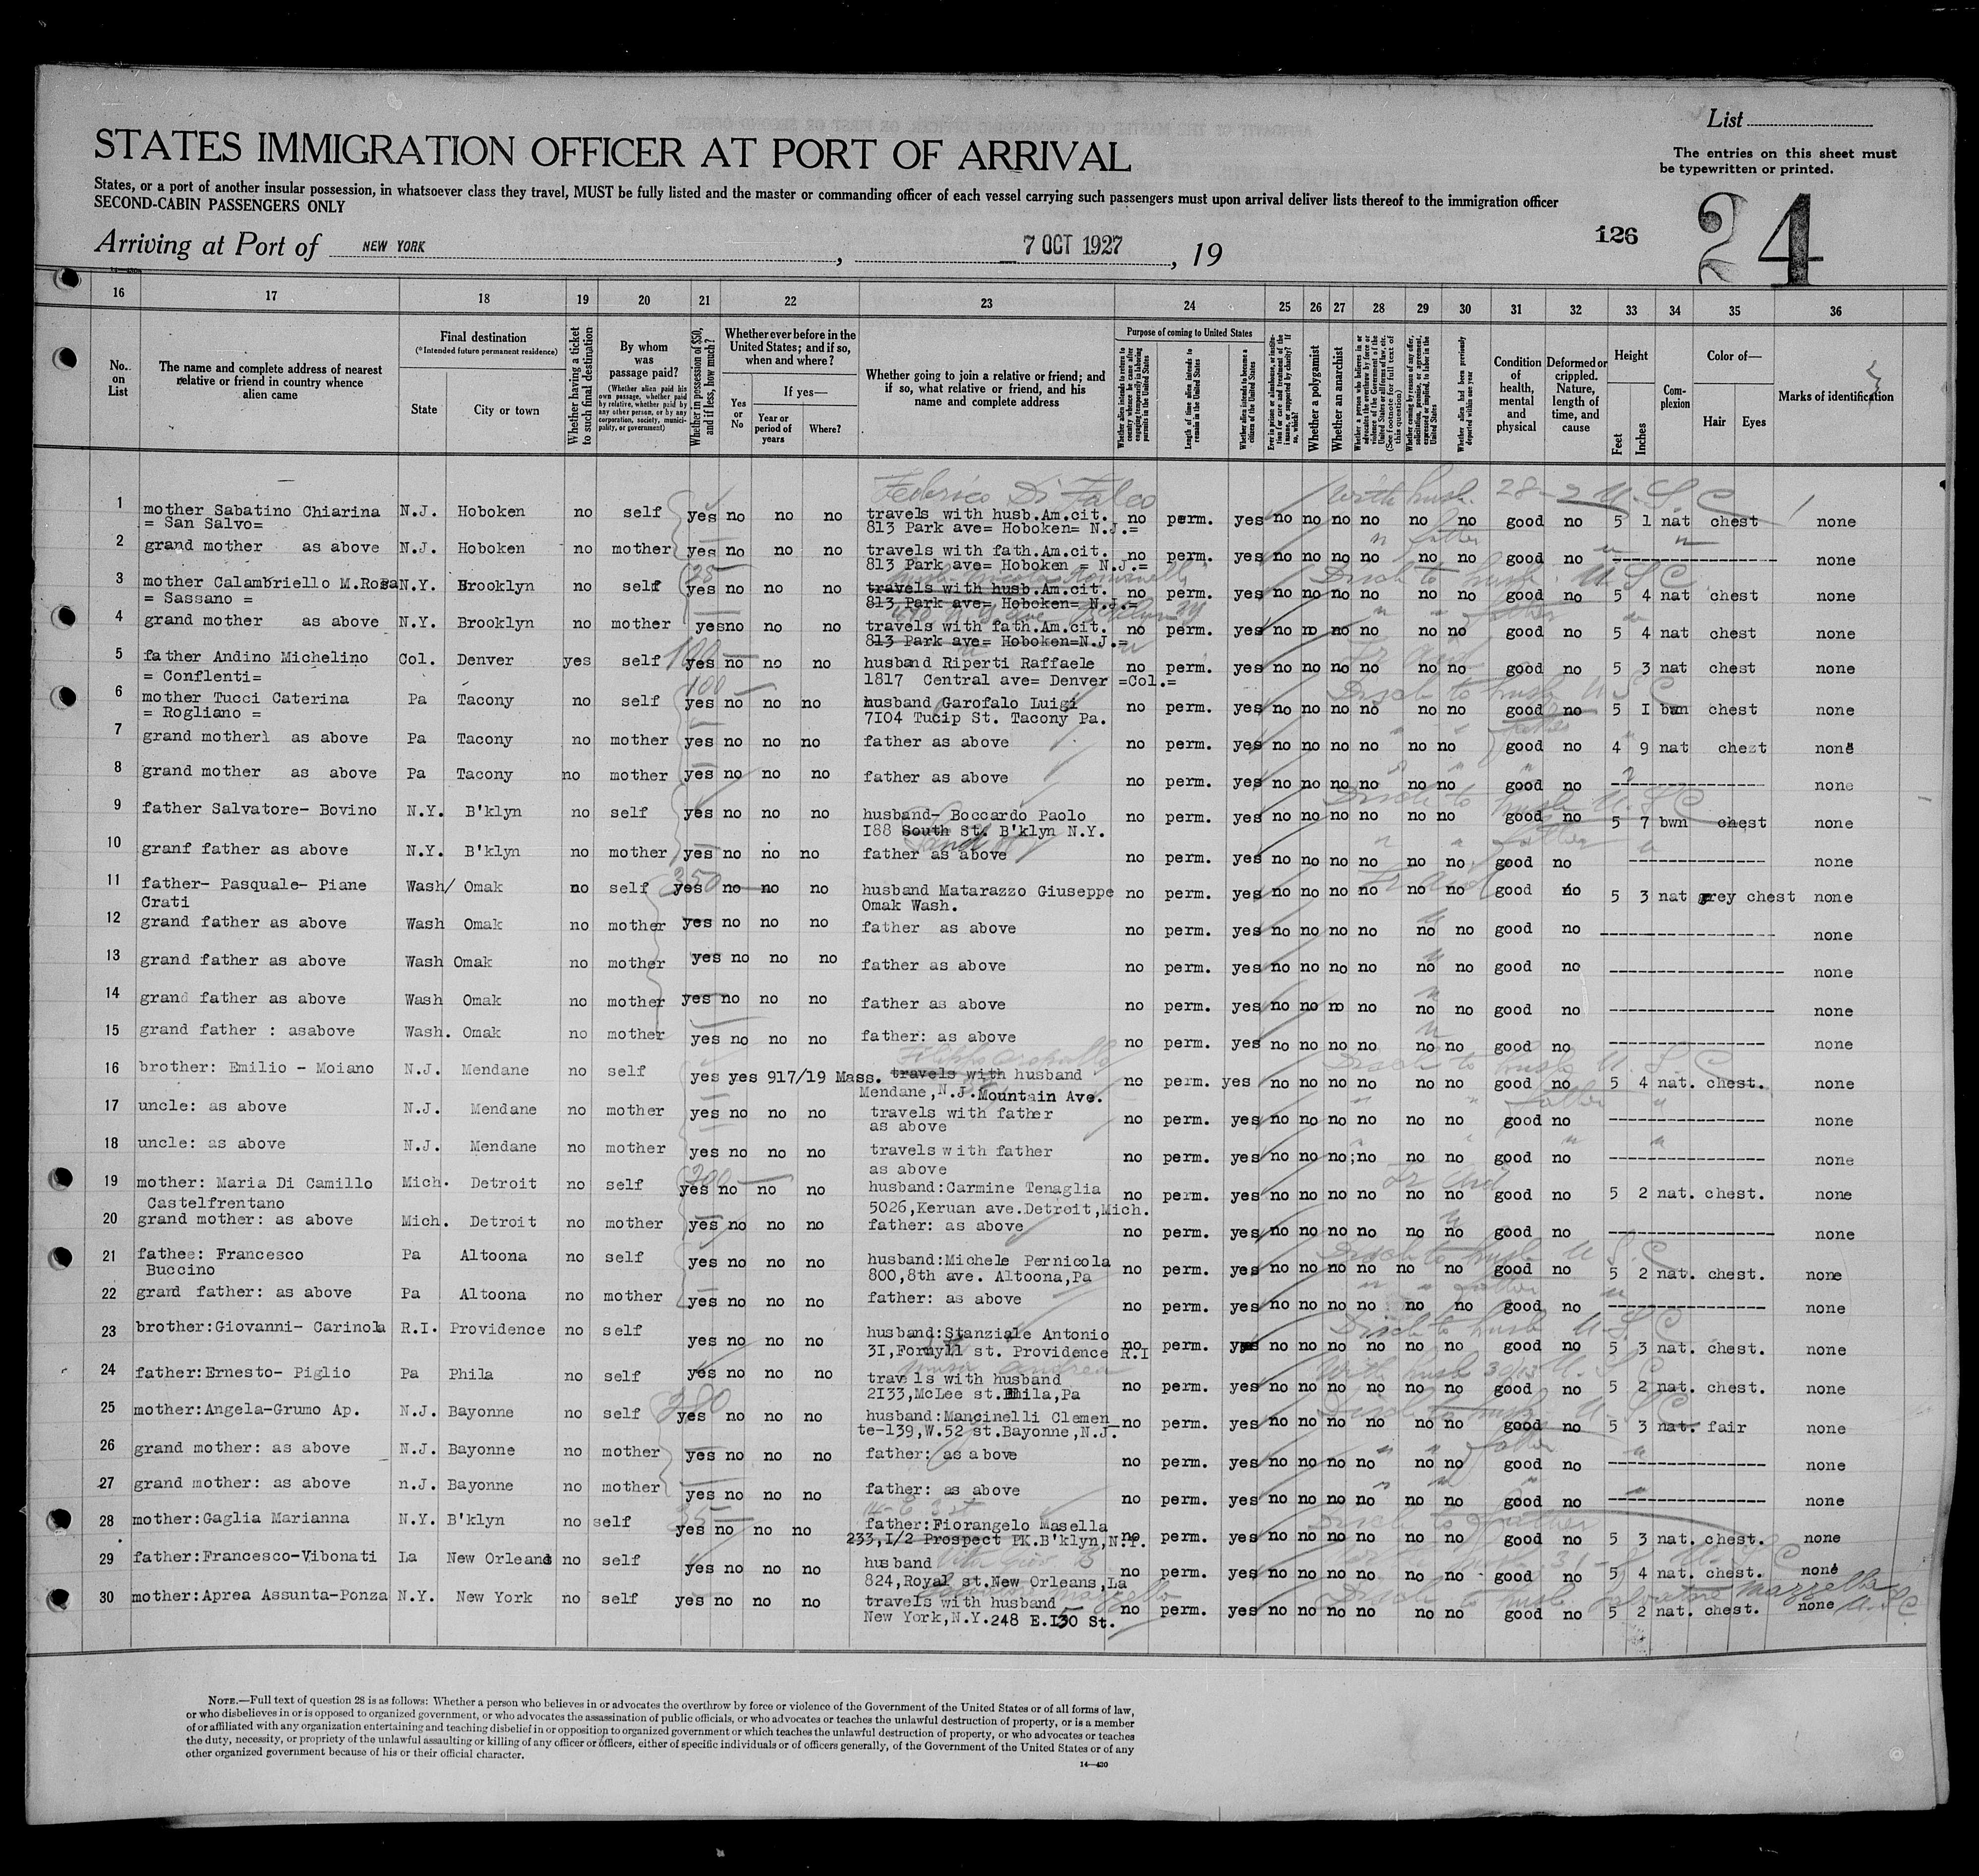 List
The entries on this sheet must
be typewritten or printed.
STATES IMMIGRATION OFFICER AT PORT OF ARRIVAL
States, or a port of another insular possession, in whatsoever class they travel, MUST be fully listed and the master or commanding officer of each vessel carrying such passengers must upon arrival deliver lists thereof to the immigration officer
SECOND-CABIN PASSENGERS ONLY
126 24
Arriving at Port of NEW YORK, 7 OCT 1927, 19
16 17 18 19 20 21 22 23 24 25 26 27 28 29 30 31 32 33 34 35 36
No. on List
The name and complete address of nearest relative or friend in country whence alien came
Final destination
(*Intended future permanent residence)
State City or town
Whether having a ticket to such final destination
By whom was passage paid?
(Whether alien paid his own passage, whether paid by relative, whether paid by any other person, or by any corporation, society, municipality, or government)
Whether in possession of $50, and if less, how much?
Whether ever before in the United States; and if so, when and where?
Yes or No
If yes—
Year or period of years Where?
Whether going to join a relative or friend; and if so, what relative or friend, and his name and complete address
Purpose of coming to United States
Whether alien intends to return to country whence he came after engaging temporarily in laboring pursuits in the United States
Length of time alien intends to remain in the United States
Whether alien intends to become a citizen of the United States
Whether a polygamist
Whether an anarchist
Whether alien had been previously deported within one year
Condition of health, mental and physical
Deformed or crippled. Nature, length of time, and cause
Height
Feet Inches
Complexion
Color of—
Hair Eyes
Marks of identification
Federico Di Falco With husb. 28- U.S.C
1 mother Sabatino Chiarina N.J. Hoboken no self yes no no no travels with husb.Am.cit. no perm. yes no no no no no no good no 5 1 nat chest none
= San Salvo= 813 Park ave= Hoboken= N.J.=
2 grand mother as above N.J. Hoboken no mother yes no no no travels with fath.Am.cit. no perm. yes no no no no no no good no none
813 Park ave= Hoboken = N.J.=
3 mother Calambriello M.Rosa N.Y. Brooklyn no self yes no no no travels with husb.Am.cit. no perm. yes no no no no no no good no 5 4 nat chest none
= Sassano = 813 Park ave= Hoboken= N.J.=
4 grand mother as above N.Y. Brooklyn no mother yes no no no travels with fath.Am.cit. no perm. yes no no no no no no good no 5 4 nat chest none
813 Park ave= Hoboken=N.J.=
5 father Andino Michelino Col. Denver yes self 100 yes no no no husband Riperti Raffaele no perm. yes no no no no no no good no 5 3 nat chest none
= Conflenti= 1817 Central ave= Denver =Col.=
6 mother Tucci Caterina Pa Tacony no self 100 yes no no no husband Garofalo Luigi no perm. yes no no no no no no good no 5 I bwn chest none
= Rogliano = 7I04 Tucip St. Tacony Pa.
7 grand motherì as above Pa Tacony no mother yes no no no father as above no perm. yes no no no no no no good no 4 9 nat chezt none
8 grand mother as above Pa Tacony no mother yes no no no father as above no perm. yes no no no no no no good no none
9 father Salvatore- Bovino N.Y. B'klyn no self yes no no no husband- Boccardo Paolo no perm. yes no no no no no no good no 5 7 bwn chest none
I88 South St. B'klyn N.Y.
10 granf father as above N.Y. B'klyn no mother yes no no no father as above no perm. yes no no no no no no good no none
11 father- Pasquale- Piane Wash/ Omak no self 350 yes no no no husband Matarazzo Giuseppe no perm. yes no no no no no no good no 5 3 nat grey chest none
Crati Omak Wash.
12 grand father as above Wash Omak no mother yes no no no father as above no perm. yes no no no no no no good no none
13 grand father as above Wash Omak no mother yes no no no father as above no perm. yes no no no no no no good no none
14 grand father as above Wash Omak no mother yes no no no father as above no perm. yes no no no no no no good no none
15 grand father : asabove Wash. Omak no mother yes no no no father: as above no perm. yes no no no no no no good no none
16 brother: Emilio - Moiano N.J. Mendane no self yes yes 917/19 Mass. travels with husband no perm. yes no no no no no no good no 5 4 nat. chest. none
Mendane,N.J.Mountain Ave.
17 uncle: as above N.J. Mendane no mother yes no no no travels with father no perm. yes no no no no no no good no none
as above
18 uncle: as above N.J. Mendane no mother yes no no no travels with father no perm. yes no no no;no no no good no none
as above
19 mother: Maria Di Camillo Mich. Detroit no self 200 yes no no no husband:Carmine Tenaglia no perm. yes no no no no no no good no 5 2 nat. chest. none
Castelfrentano 5026,Keruan ave.Detroit,Mich.
20 grand mother: as above Mich. Detroit no mother yes no no no father: as above no perm. yes no no no no no no good no none
21 fathee: Francesco Pa Altoona no self yes no no no husband:Michele Pernicola no perm. yes no no no no no no good no 5 2 nat. chest. none
Buccino 800,8th ave. Altoona,Pa
22 grand father: as above Pa Altoona no mother yes no no no father: as above no perm. yes no no no no no no good no none
23 brother:Giovanni- Carinola R.I. Providence no self yes no no no husband:Stanziale Antonio no perm. yes no no no no no no good no 5 3 nat. chest. none
3I,Fornyll st. Providence R.I
24 father:Ernesto- Piglio Pa Phila no self yes no no no travels with husband no perm. yes no no no no no no good no 5 2 nat. chest. none
2I33,McLee st.Phila,Pa
25 mother:Angela-Grumo Ap. N.J. Bayonne no self 380 yes no no no husband:Mancinelli Clemen no perm. yes no no no no no no good no 5 3 nat. fair none
te-139,W.52 st.Bayonne,N.J.
26 grand mother: as above N.J. Bayonne no mother yes no no no father: as above no perm. yes no no no no no no good no none
27 grand mother: as above n.J. Bayonne no mother yes no no no father: as above no perm. yes no no no no no no good no none
28 mother:Gaglia Marianna N.Y. B'klyn no self 35 yes no no no father:Fiorangelo Masella no perm. yes no no no no no no good no 5 3 nat. chest. none
233,I/2 Prospect PK.B'klyn,N.Y.
29 father:Francesco-Vibonati La New Orleans no self yes no no no husband no perm. yes no no no no no no good no 5 4 nat. chest. none
824,Royal st.New Orleans,La
30 mother:Aprea Assunta-Ponza N.Y. New York no self yes no no no travels with husband no perm. yes no no no no no no good no 5 2 nat. chest. none
New York,N.Y.248 E.I50 St.
NOTE.—Full text of question 28 is as follows: Whether a person who believes in or advocates the overthrow by force or violence of the Government of the United States or of all forms of law,
or who disbelieves in or is opposed to organized government, or who advocates the assassination of public officials, or who advocates or teaches the unlawful destruction of property, or is a member
of or affiliated with any organization entertaining and teaching disbelief in or opposition to organized government or which teaches the unlawful destruction of property, or who advocates or teaches
the duty, necessity, or propriety of the unlawful assaulting or killing of any officer or officers, either of specific individuals or of officers generally, of the Government of the United States or of any
other organized government because of his or their official character.
14—430